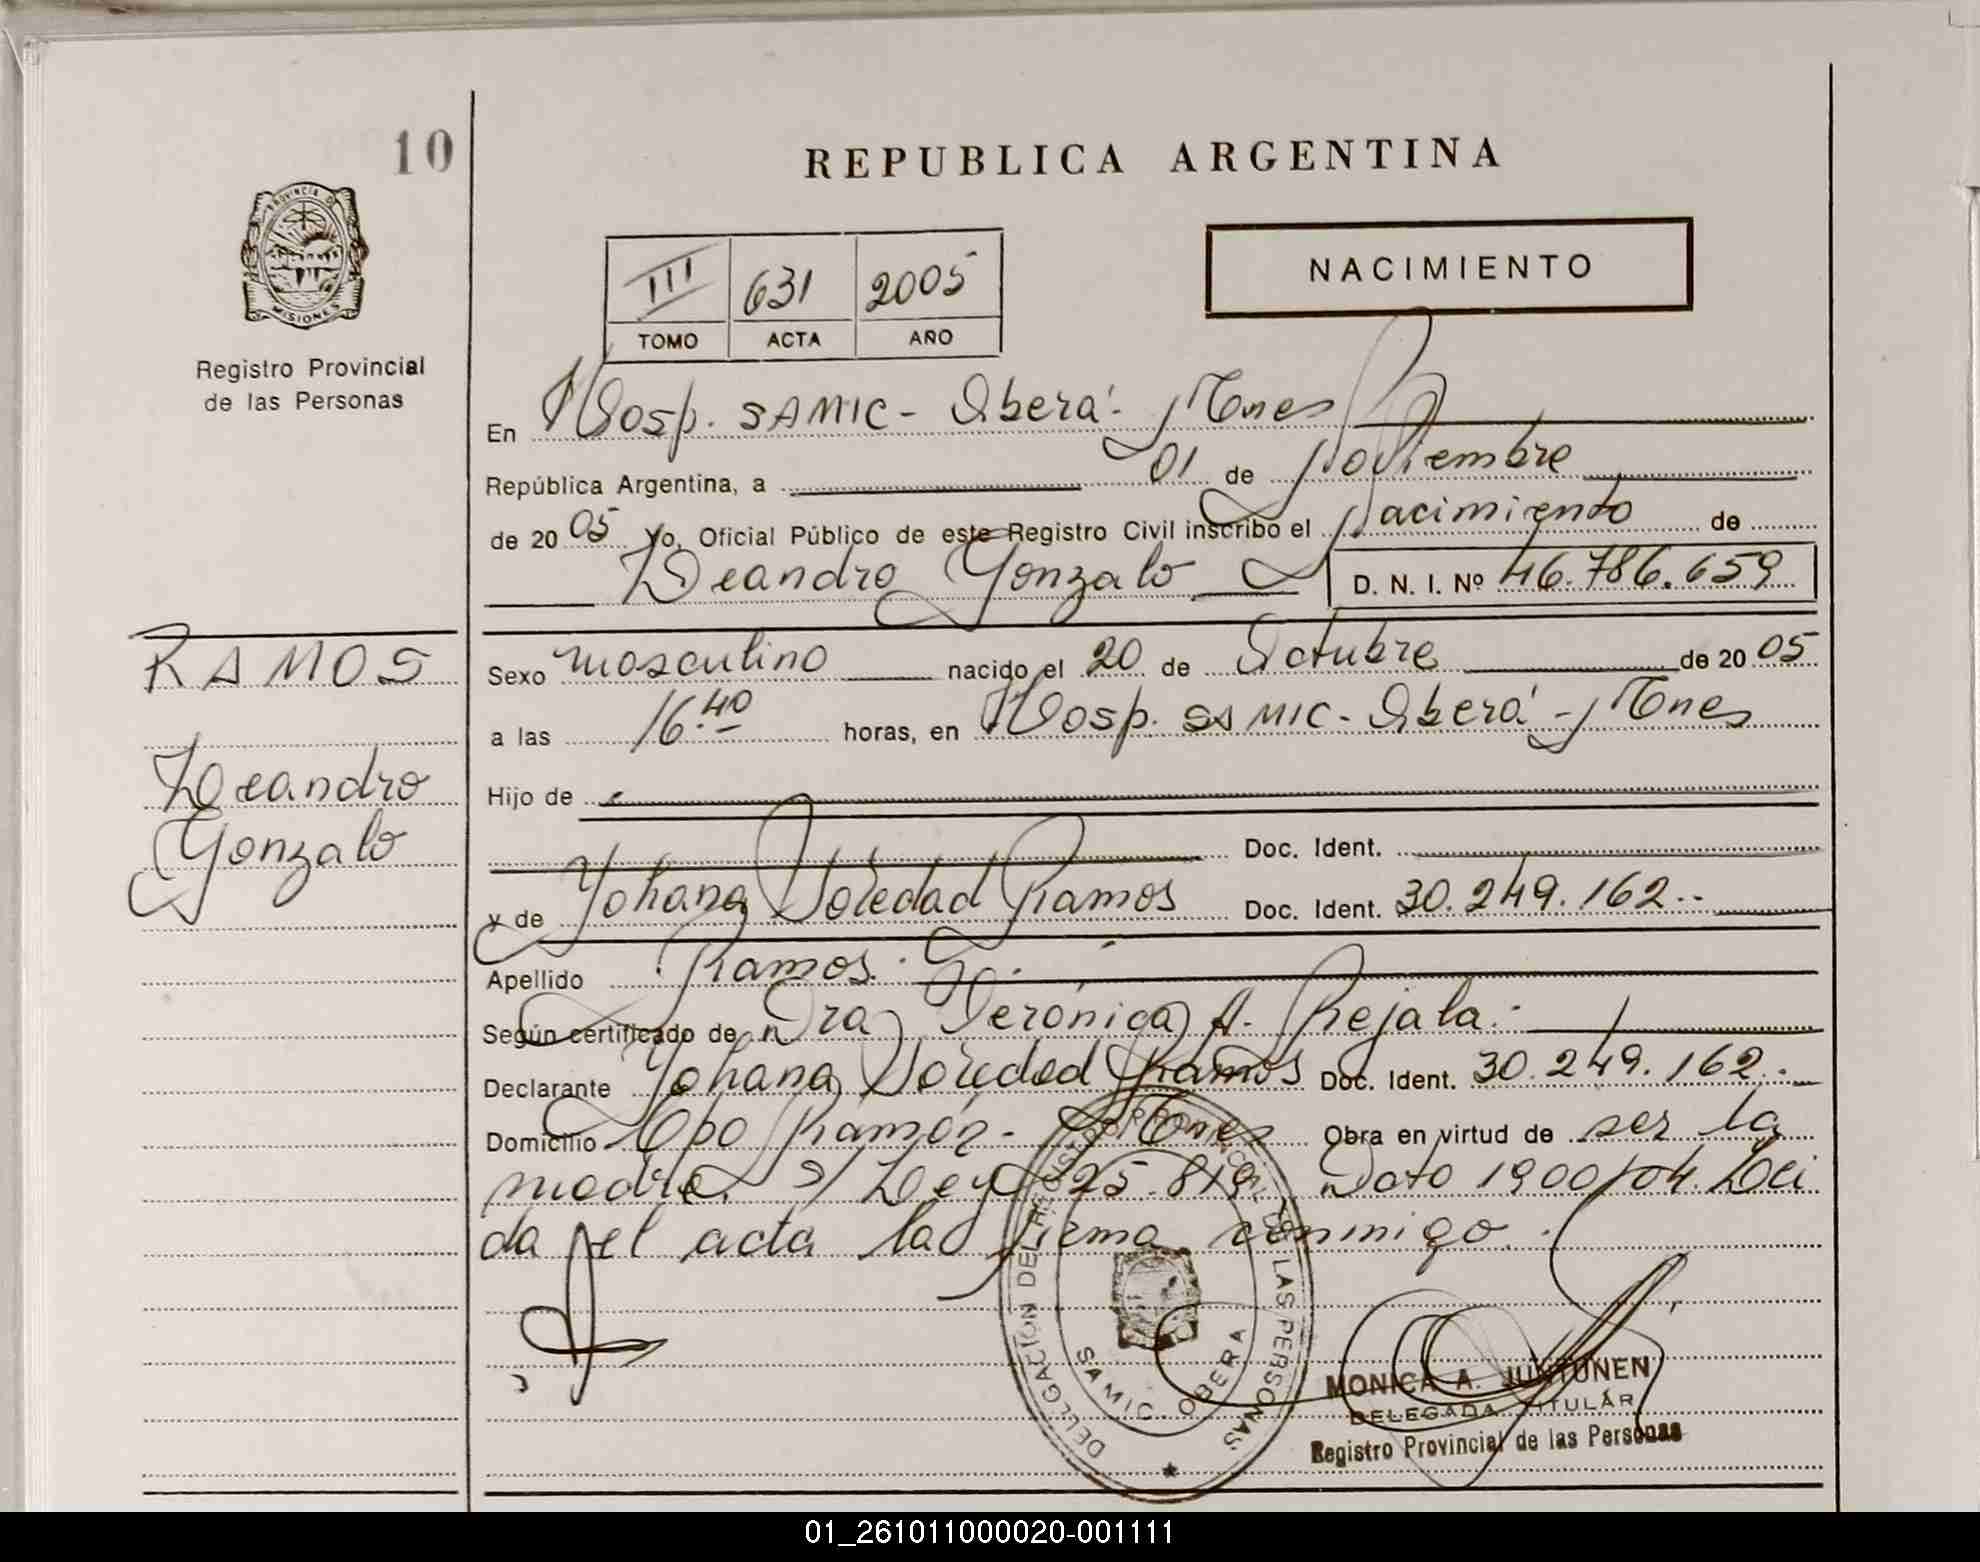 10
REPUBLICA ARGENTINA
PROVINCIA DE
MISIONES
Registro Provincial
de las Personas
NACIMIENTO
III 631 2005
TOMO ACTA AÑO
En Hosp. SAMIC - Oberá - Mnes
República Argentina, a 01 de Noviembre
de 2005 Yo, Oficial Público de este Registro Civil inscribo el Nacimiento de
Leandro Gonzalo D. N. I. Nº 46.786.659
RAMOS
Leandro
Gonzalo
Sexo masculino nacido el 20 de Octubre de 2005
a las 16.40 horas, en Hosp. SAMIC - Oberá - Mnes
Hijo de
Doc. Ident.
y de Yohana Soledad Ramos Doc. Ident. 30.249.162.-
Apellido Ramos.
Según certificado de n Dra Verónica A. Rejala.-
Declarante Yohana Soledad Ramos Doc. Ident. 30.249.162.-
Domicilio Cpo Ramón - Mnes Obra en virtud de ser la
madre s/ Ley 25.819 Dcto 1900/04. Lei
da el acta la firma conmigo.
DELEGACIÓN DEL REGISTRO PROVINCIAL DE LAS PERSONAS
SAMIC OBERA
MONICA A. JUNTUNEN
DELEGADA TITULAR
Registro Provincial de las Personas
01_261011000020-001111